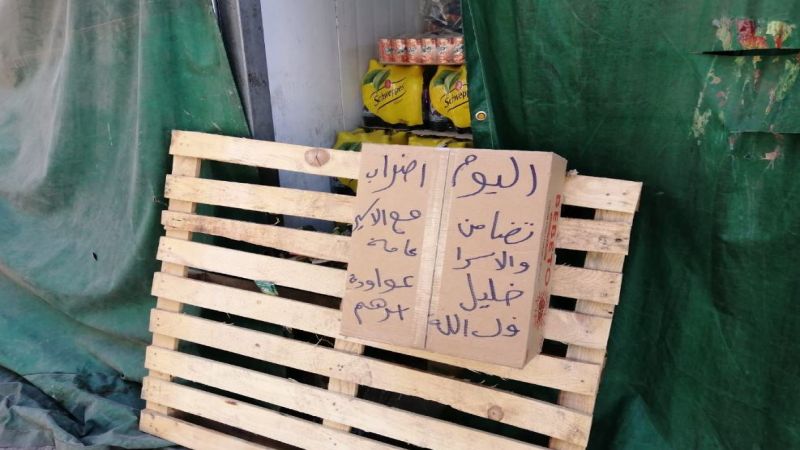 اليوم اضراب
تضامن مع الاسير
والاسرا عامة
خليل عواودة
فك الله اسرهم
Schweppes
Schweppes